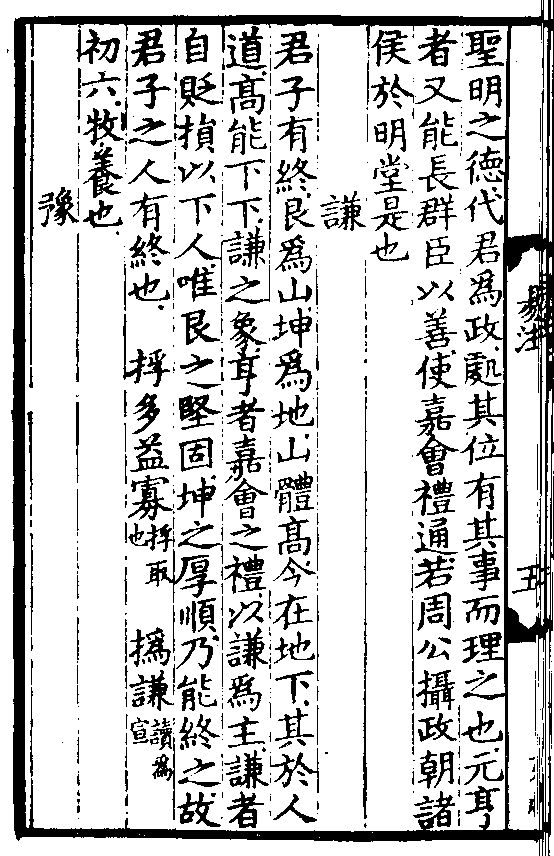 聖明之德代君爲政處其位有其事而理之也元亨
者又能長群臣以善使嘉會禮通若周公攝政朝諸
侯於明堂是也
謙
君子有終艮爲山坤爲地山體高今在地下其於人
道高能下下謙之象耳者嘉會之禮以謙爲主謙者
自貶損以下人唯艮之堅固坤之厚順乃能終之故
君子之人有終也 捊多益寡捊取也 撝謙讀爲宣
初六牧養也
豫
易注
五